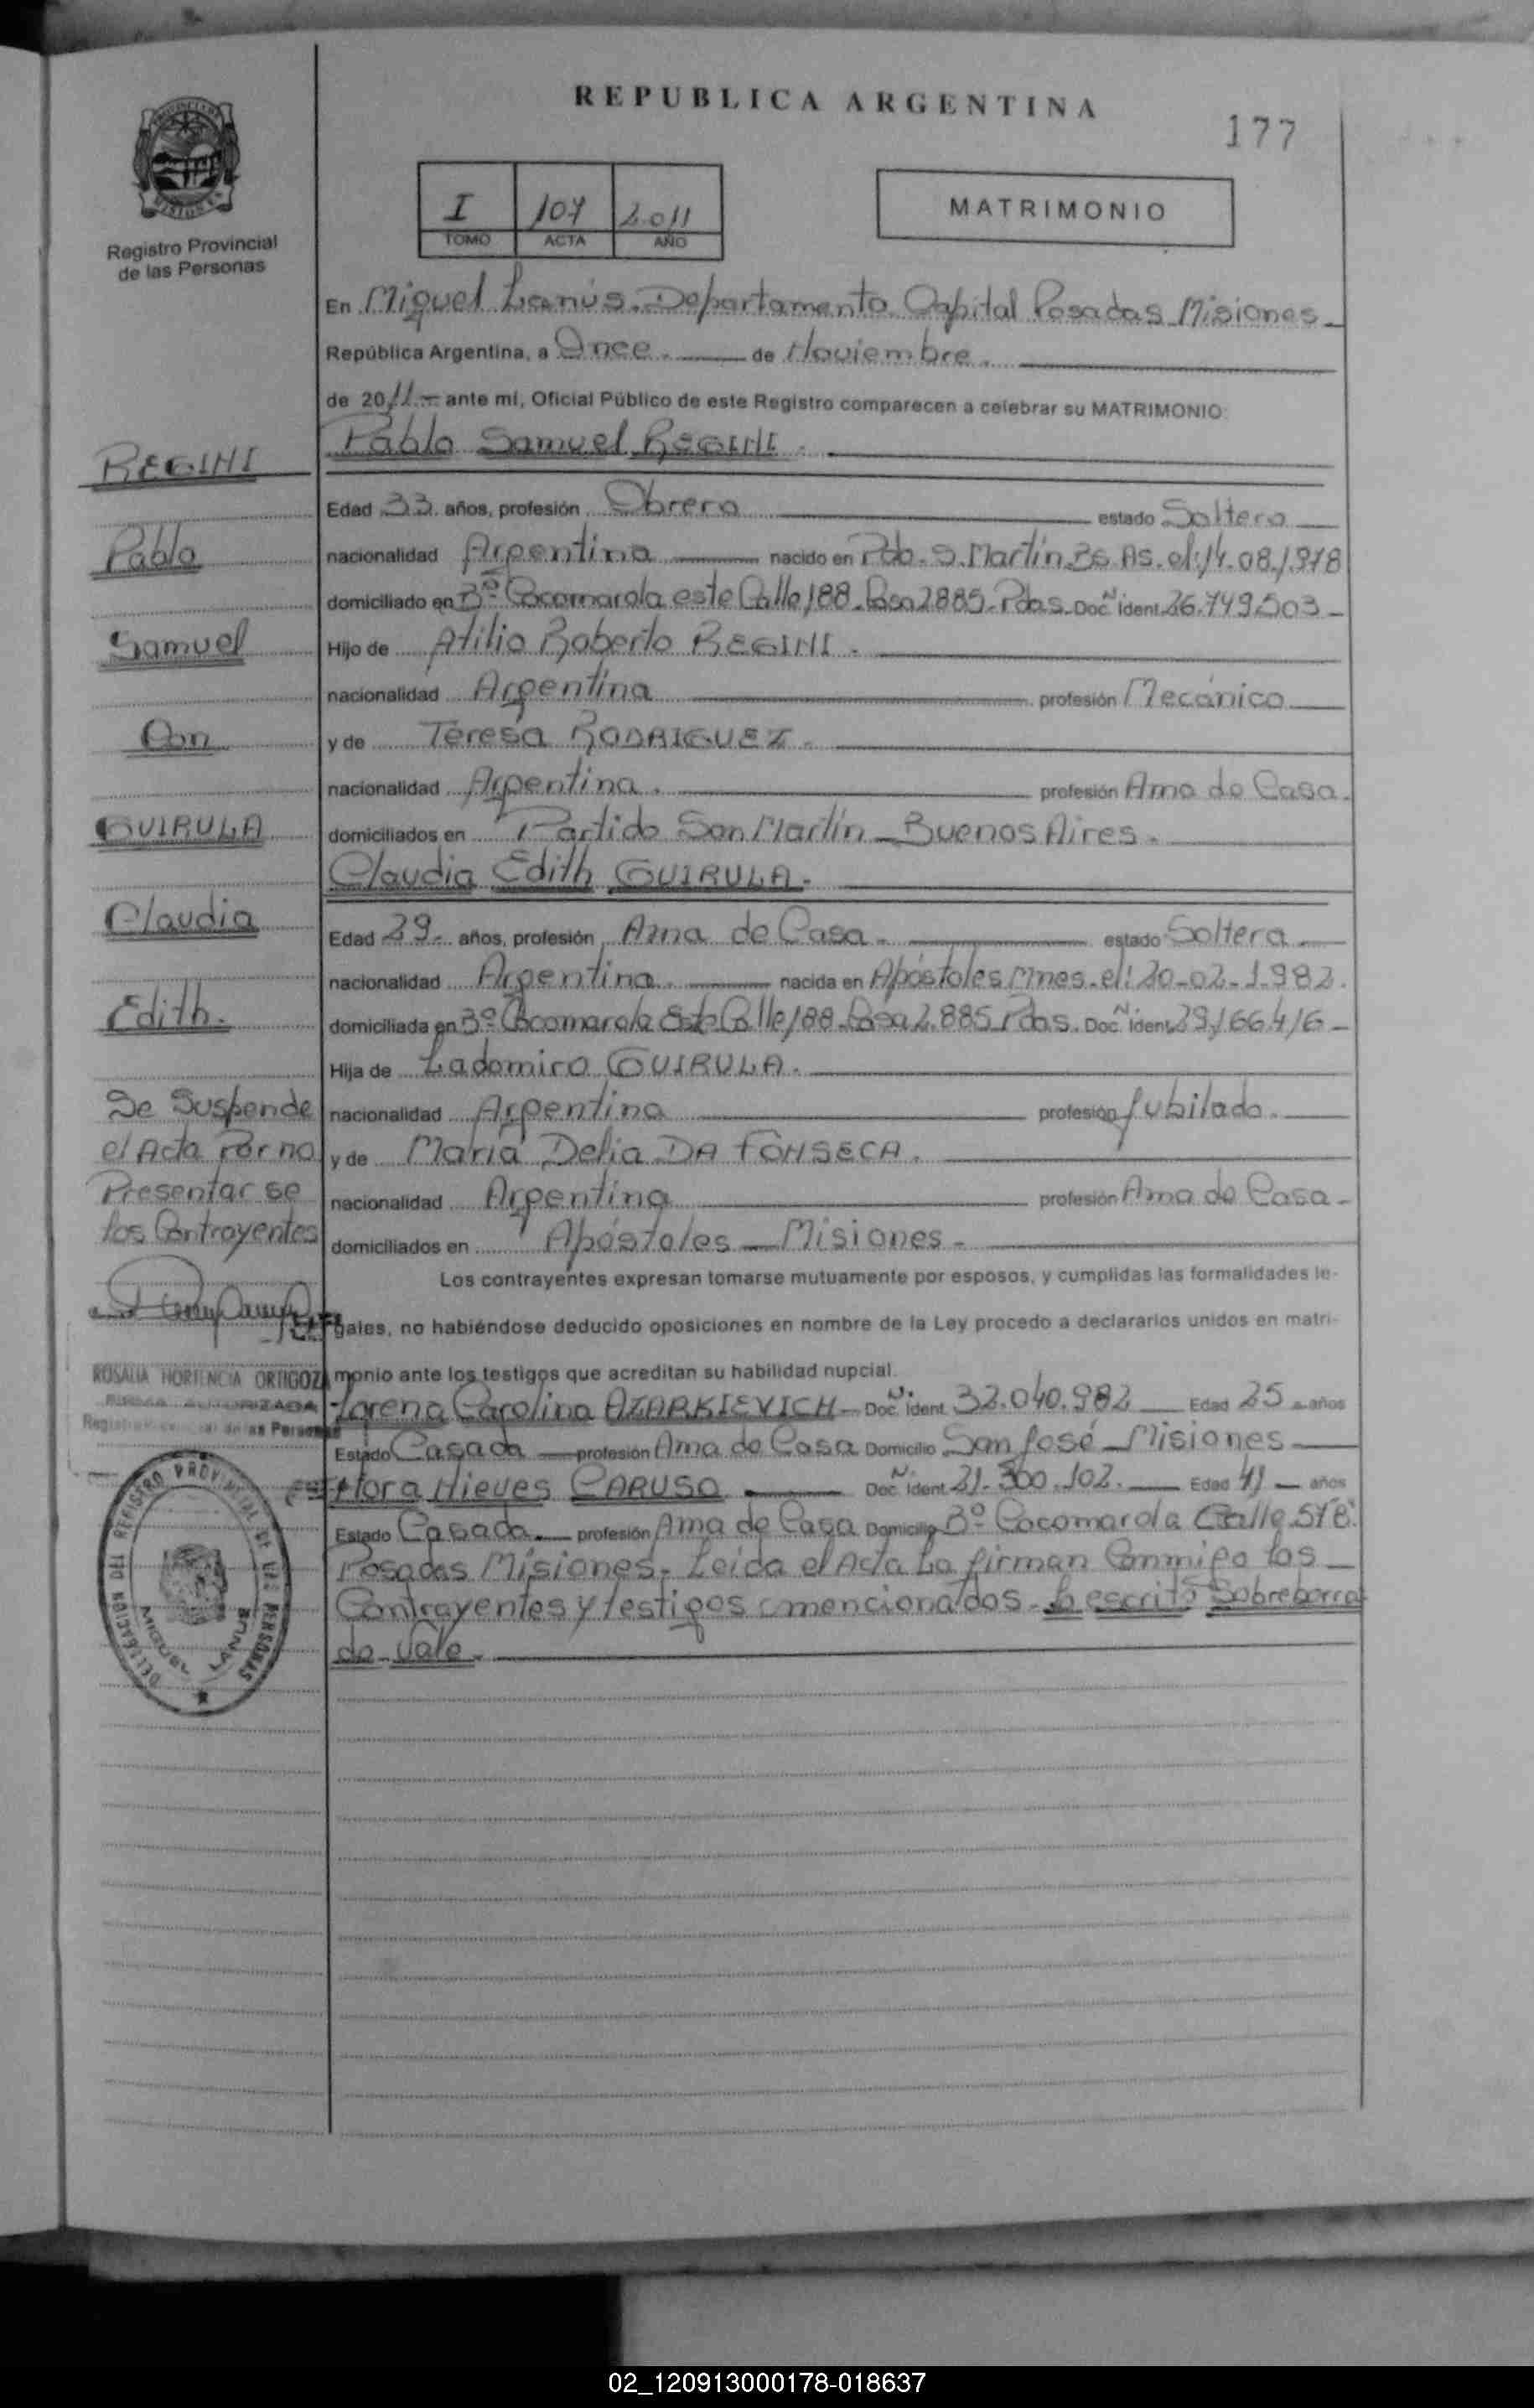 REPUBLICA ARGENTINA
177
MISIONES
Registro Provincial
de las Personas
I 107 2.011
TOMO ACTA AÑO
MATRIMONIO
En Miguel Lanús. Departamento Capital Posadas Misiones
República Argentina, a Once. de Noviembre.
de 2011 ante mí, Oficial Público de este Registro comparecen a celebrar su MATRIMONIO:
Pablo Samuel REGINI.
Edad 33 años, profesión Obrero estado Soltero
nacionalidad Argentina nacido en Pdo. S. Martín Bs. As. el: 14-08-1978
domiciliado en Bº Cocomarola este Calle 188 - Casa 2885 - Pdas. Doc. Nº Ident. 26.749.503
Hijo de Atilio Roberto REGINI.
nacionalidad Argentina profesión Mecánico
y de Teresa RODRIGUEZ.
nacionalidad Argentina. profesión Ama de Casa.
domiciliados en Partido San Martín - Buenos Aires.
Claudia Edith GUIRULA.
Edad 29 años, profesión Ama de Casa. estado Soltera
nacionalidad Argentina. nacida en Apóstoles Mnes. el: 20-02-1.982.
domiciliada en Bº Cocomarola Este Calle 188 - Casa 2.885 Pdas. Doc. Nº Ident. 29.166.416
Hija de Ladomiro GUIRULA.
nacionalidad Argentina profesión Jubilado.
y de María Delia DA FONSECA.
nacionalidad Argentina profesión Ama de Casa
domiciliados en Apóstoles - Misiones
Los contrayentes expresan tomarse mutuamente por esposos, y cumplidas las formalidades le-
gales, no habiéndose deducido oposiciones en nombre de la Ley procedo a declararlos unidos en matri-
monio ante los testigos que acreditan su habilidad nupcial.
Lorena Carolina AZARKIEVICH Doc. Nº Ident. 32.040.982 Edad 25 años
Estado Casada profesión Ama de Casa Domicilio San José - Misiones
Nora Nieves CARUSO Doc. Nº Ident. 21.300.102. Edad 41 años
Estado Casada profesión Ama de Casa Domicilio Bº Cocomarola Calle 578
Posadas Misiones. Leida el Acta La firman Conmigo los
Contrayentes y testigos mencionados. Lo escrito Sobreborra
do Vale.
REGINI
Pablo
Samuel
Con
GUIRULA
Claudia
Edith.
Se Suspende
el Acta Por no
Presentarse
los Contrayentes
ROSALIA HORTENCIA ORTIGOZA
FIRMA AUTORIZADA
Registro Provincial de las Personas
DELEGACION DEL REGISTRO PROVINCIAL DE LAS PERSONAS
MIGUEL LANUS
02_120913000178-018637